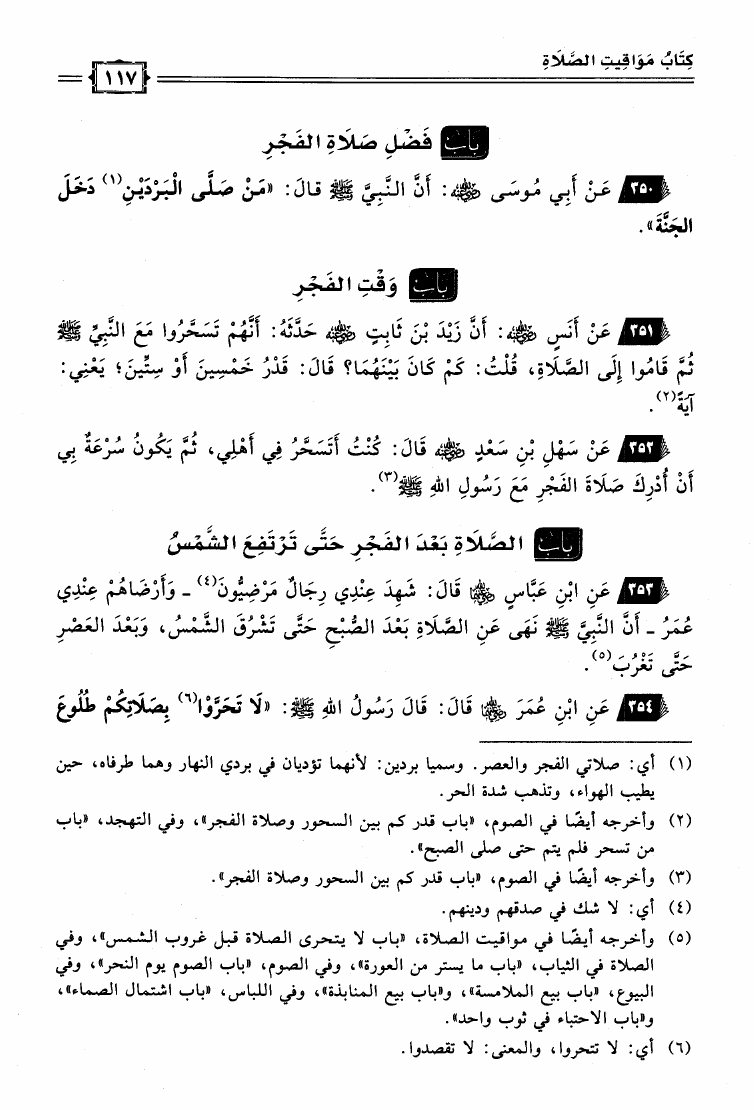 كِتَابُ مَوَاقِيتِ الصَّلَاةِ
١١٧
باب فَضْلِ صَلَاةِ الفَجْرِ
٣٥٠ عَنْ أَبِي مُوسَى ﷺ: أَنَّ النَّبِيَّ ﷺ قالَ: «مَنْ صَلَّى الْبَرْدَيْنِ(١) دَخَلَ
الجَنَّةَ».
باب وَقْتِ الفَجْرِ
٣٥١ عَنْ أَنَسٍ رضي الله عنه: أَنَّ زَيْدَ بْنَ ثَابِتٍ رضي الله عنه حَدَّثَهُ: أَنَّهُمْ تَسَحَّرُوا مَعَ النَّبِيِّ ﷺ
ثُمَّ قَامُوا إِلَى الصَّلَاةِ، قُلْتُ: كَمْ كَانَ بَيْنَهُمَا؟ قَالَ: قَدْرُ خَمْسِينَ أَوْ سِتِّينَ؛ يَعْنِي:
آيَةً(٢).
٣٥٢ عَنْ سَهْلِ بْنِ سَعْدٍ رضي الله عنه قَالَ: كُنْتُ أَتَسَحَّرُ فِي أَهْلِي، ثُمَّ يَكُونُ سُرْعَةٌ بِي
أَنْ أُدْرِكَ صَلَاةَ الفَجْرِ مَعَ رَسُولِ اللهِ ﷺ(٣).
باب الصَّلَاةِ بَعْدَ الفَجْرِ حَتَّى تَرْتَفِعَ الشَّمْسُ
٣٥٣ عَنِ ابْنِ عَبَّاسٍ رضي الله عنهما قَالَ: شَهِدَ عِنْدِي رِجَالٌ مَرْضِيُّونَ(٤) ـ وَأَرْضَاهُمْ عِنْدِي
عُمَرُ ـ أَنَّ النَّبِيَّ ﷺ نَهَى عَنِ الصَّلَاةِ بَعْدَ الصُّبْحِ حَتَّى تَشْرُقَ الشَّمْسُ، وَبَعْدَ العَصْرِ
حَتَّى تَغْرُبَ(٥).
٣٥٤ عَنِ ابْنِ عُمَرَ رضي الله عنهما قَالَ: قَالَ رَسُولُ اللهِ ﷺ: «لَا تَحَرَّوْا(٦) بِصَلَاتِكُمْ طُلُوعَ
(١) أي: صلاتي الفجر والعصر. وسميا بردين: لأنهما تؤديان في بردي النهار وهما طرفاه، حين
يطيب الهواء، وتذهب شدة الحر.
(٢) وأخرجه أيضًا في الصوم، «باب قدر كم بين السحور وصلاة الفجر»، وفي التهجد، «باب
من تسحر فلم يتم حتى صلى الصبح».
(٣) وأخرجه أيضًا في الصوم، «باب قدر كم بين السحور وصلاة الفجر».
(٤) أي: لا شك في صدقهم ودينهم.
(٥) وأخرجه أيضًا في مواقيت الصلاة، «باب لا يتحرى الصلاة قبل غروب الشمس»، وفي
الصلاة في الثياب، «باب ما يستر من العورة»، وفي الصوم، «باب الصوم يوم النحر»، وفي
البيوع، «باب بيع الملامسة»، و«باب بيع المنابذة»، وفي اللباس، «باب اشتمال الصماء»،
و«باب الاحتباء في ثوب واحد».
(٦) أي: لا تتحروا، والمعنى: لا تقصدوا.